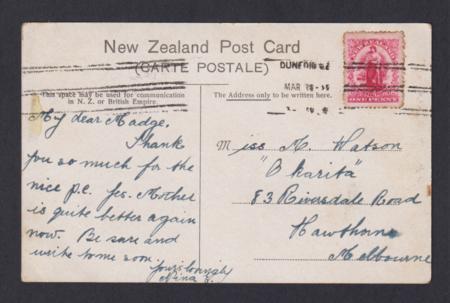 New Zealand Post Card
(CARTE POSTALE)
This space may be used for communication
in N. Z. or British Empire.
The Address only to be written here.
DUNEDIN NZ
MAR
ONE PENNY
My dear Madge,
Thank
you so much for the
nice p.c. Yes. Mother
is quite better again
now. Be sure and
write to me soon.
Miss M. Watson
"Okarita"
83 Riversdale Road
Hawthorne
Melbourne